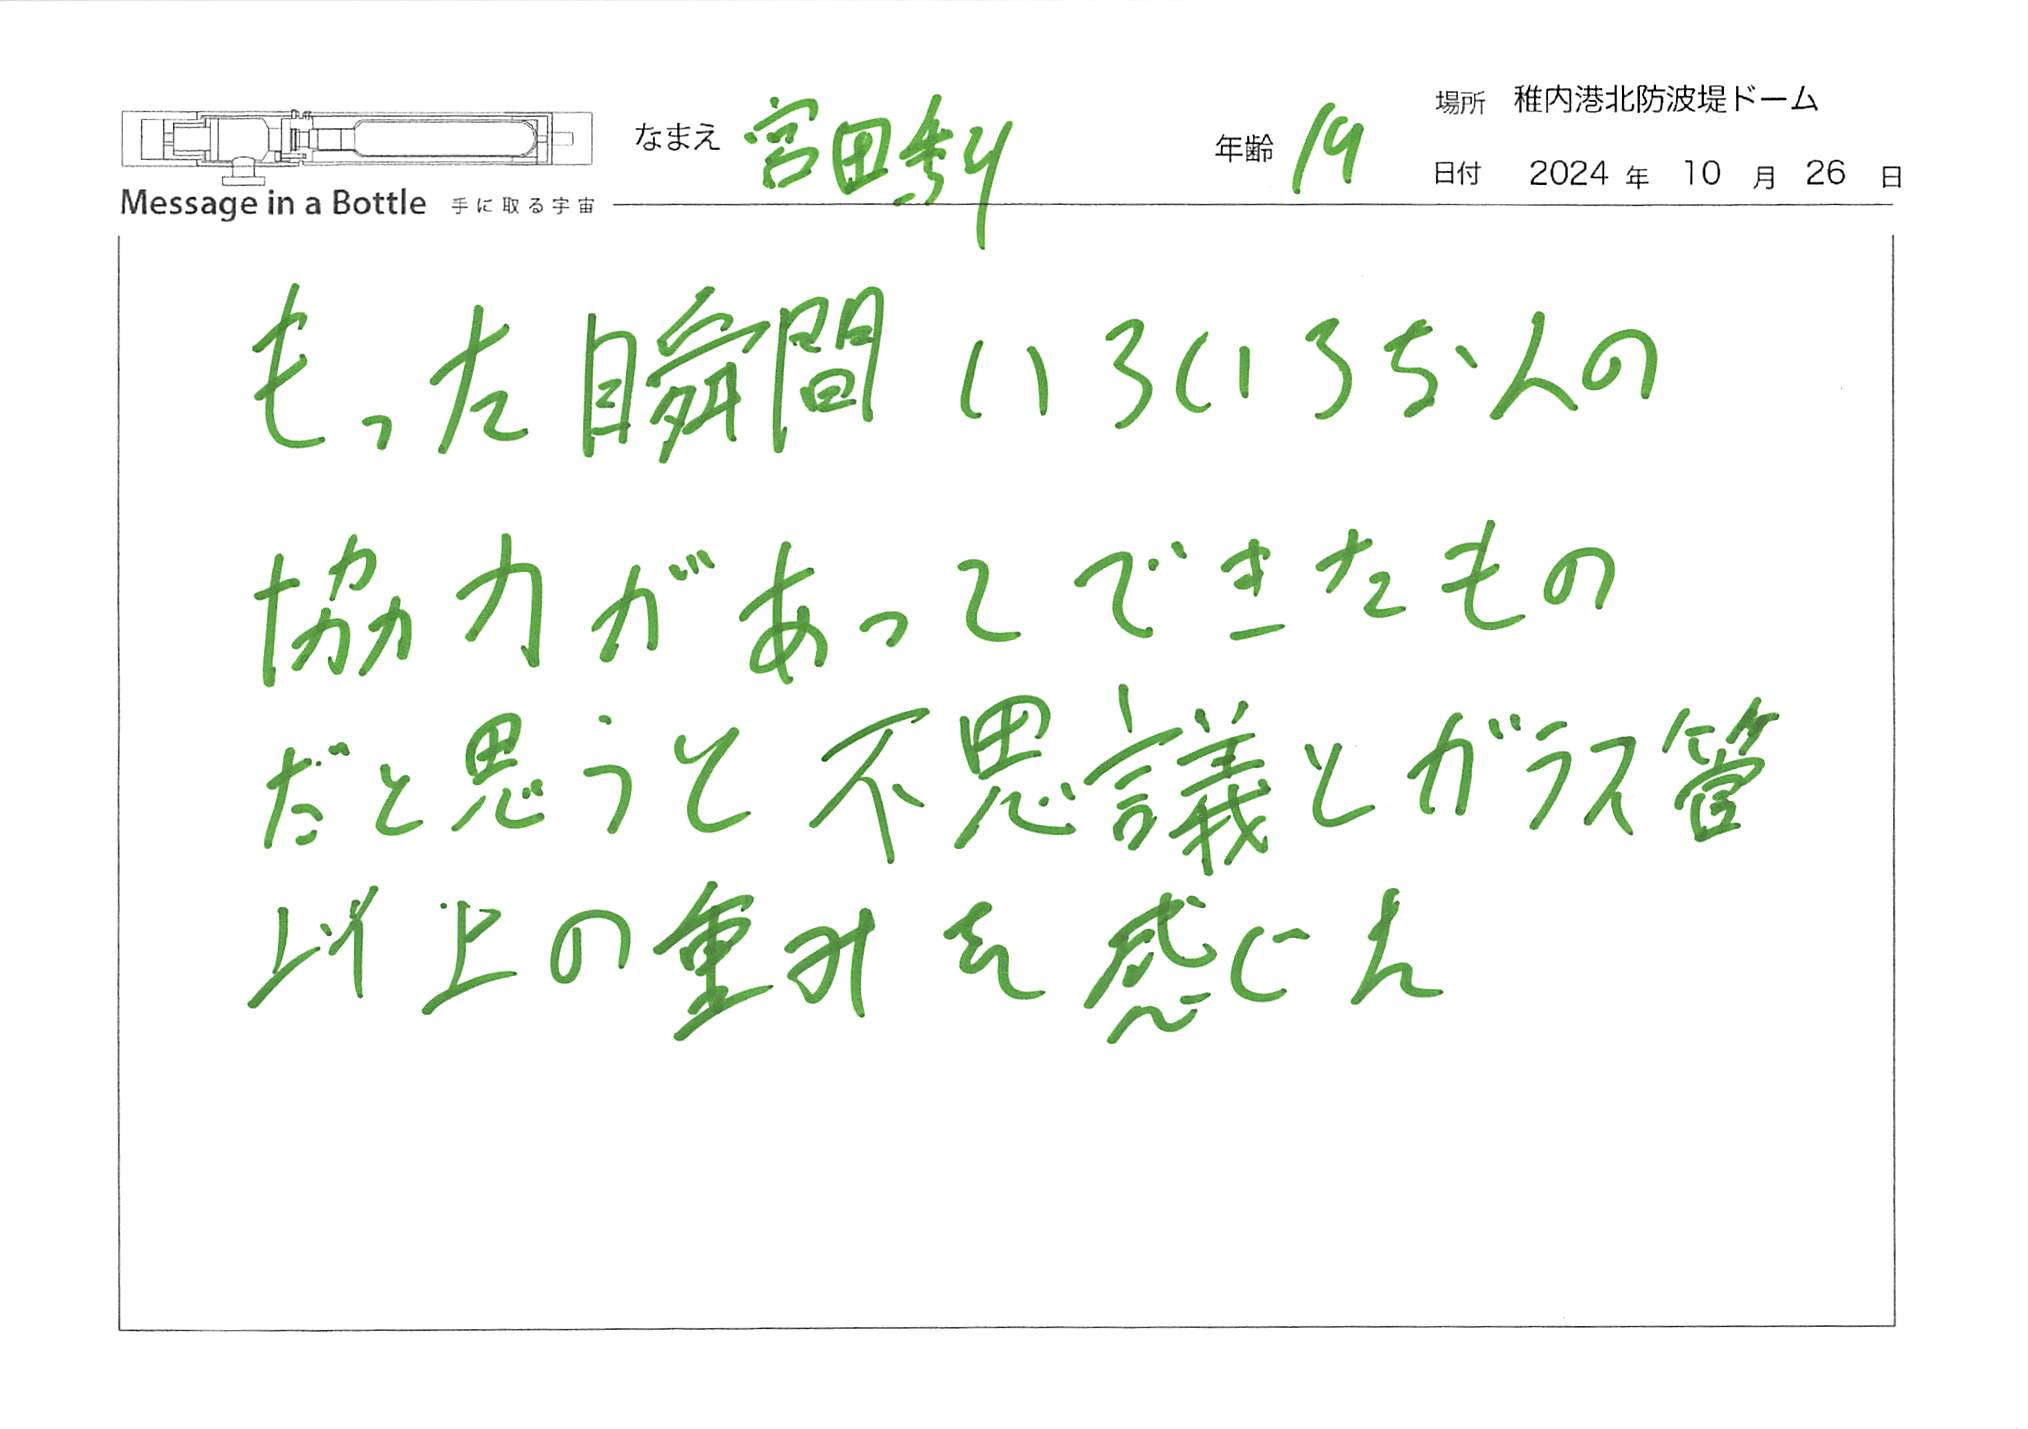 なまえ 宮田
年齢 19
場所 稚内港北防波堤ドーム
日付 2024 年 10 月 26 日
Message in a Bottle 手に取る宇宙
もった瞬間 いろいろな人の
協力があってできたもの
だと思うと不思議とガラス管
以上の重みを感じた